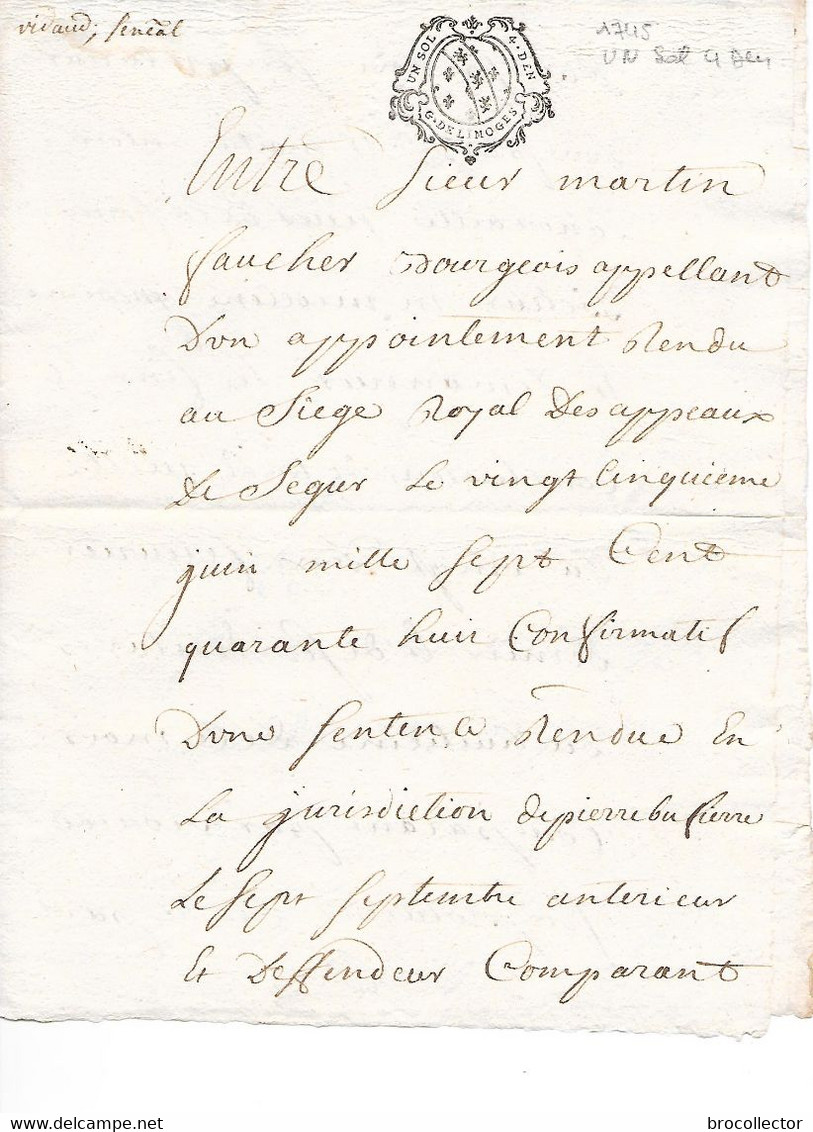 vidaud, senéal
UN SOL 4·DEN
G·DE LIMOGES
1745
UN Sol 4 Den
Entre sieur martin
faucher Bourgeois appellant
Dun appointement Rendu
au Siege Royal Des appeaux
De Segur Le vingt Cinquieme
juin mille sept Cent
quarante huit Confirmatif
Dune sentence Rendue En
La jurisdiction de pierrebufierre
Le sept septembre anterieur
Et Deffendeur Comparant
brocollector